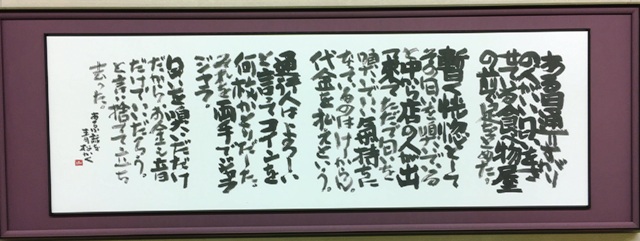 ある日通りすがり
の人がいい匂をさ
せている食べ物屋
の前で足をとめた。
暫く恍惚として
その匂いを嗅いでる
と中から店の人が出
て来てただで匂いを
嗅いでいい気持に
なっているのはけしからん。
代金を払えという。
通行人はよろしい
と言ってコインを
何枚かとりだした。
それを両手でジャラ
ジャラ。
匂いを嗅いだだけ
だからお金も音
だけでいいだろう。
と言い捨てて立ち
去った。